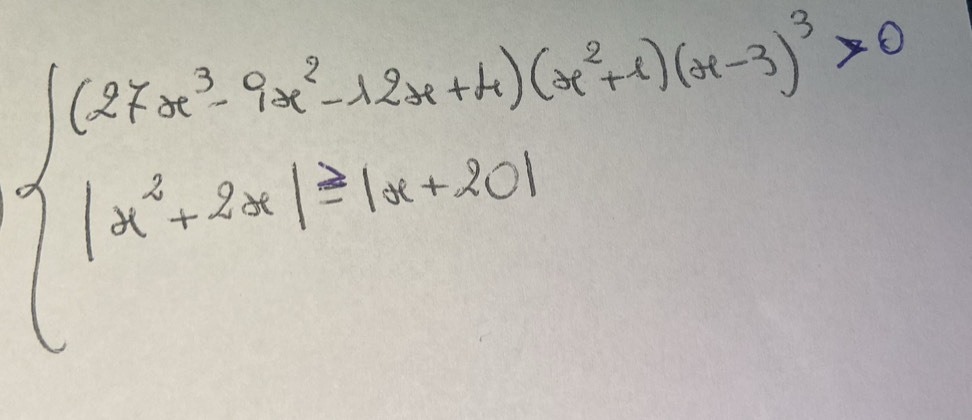 (27x³ - 9x² - 12x + 4)(x² + 1)(x - 3)³ > 0
|x² + 2x| ≥ |x + 20|